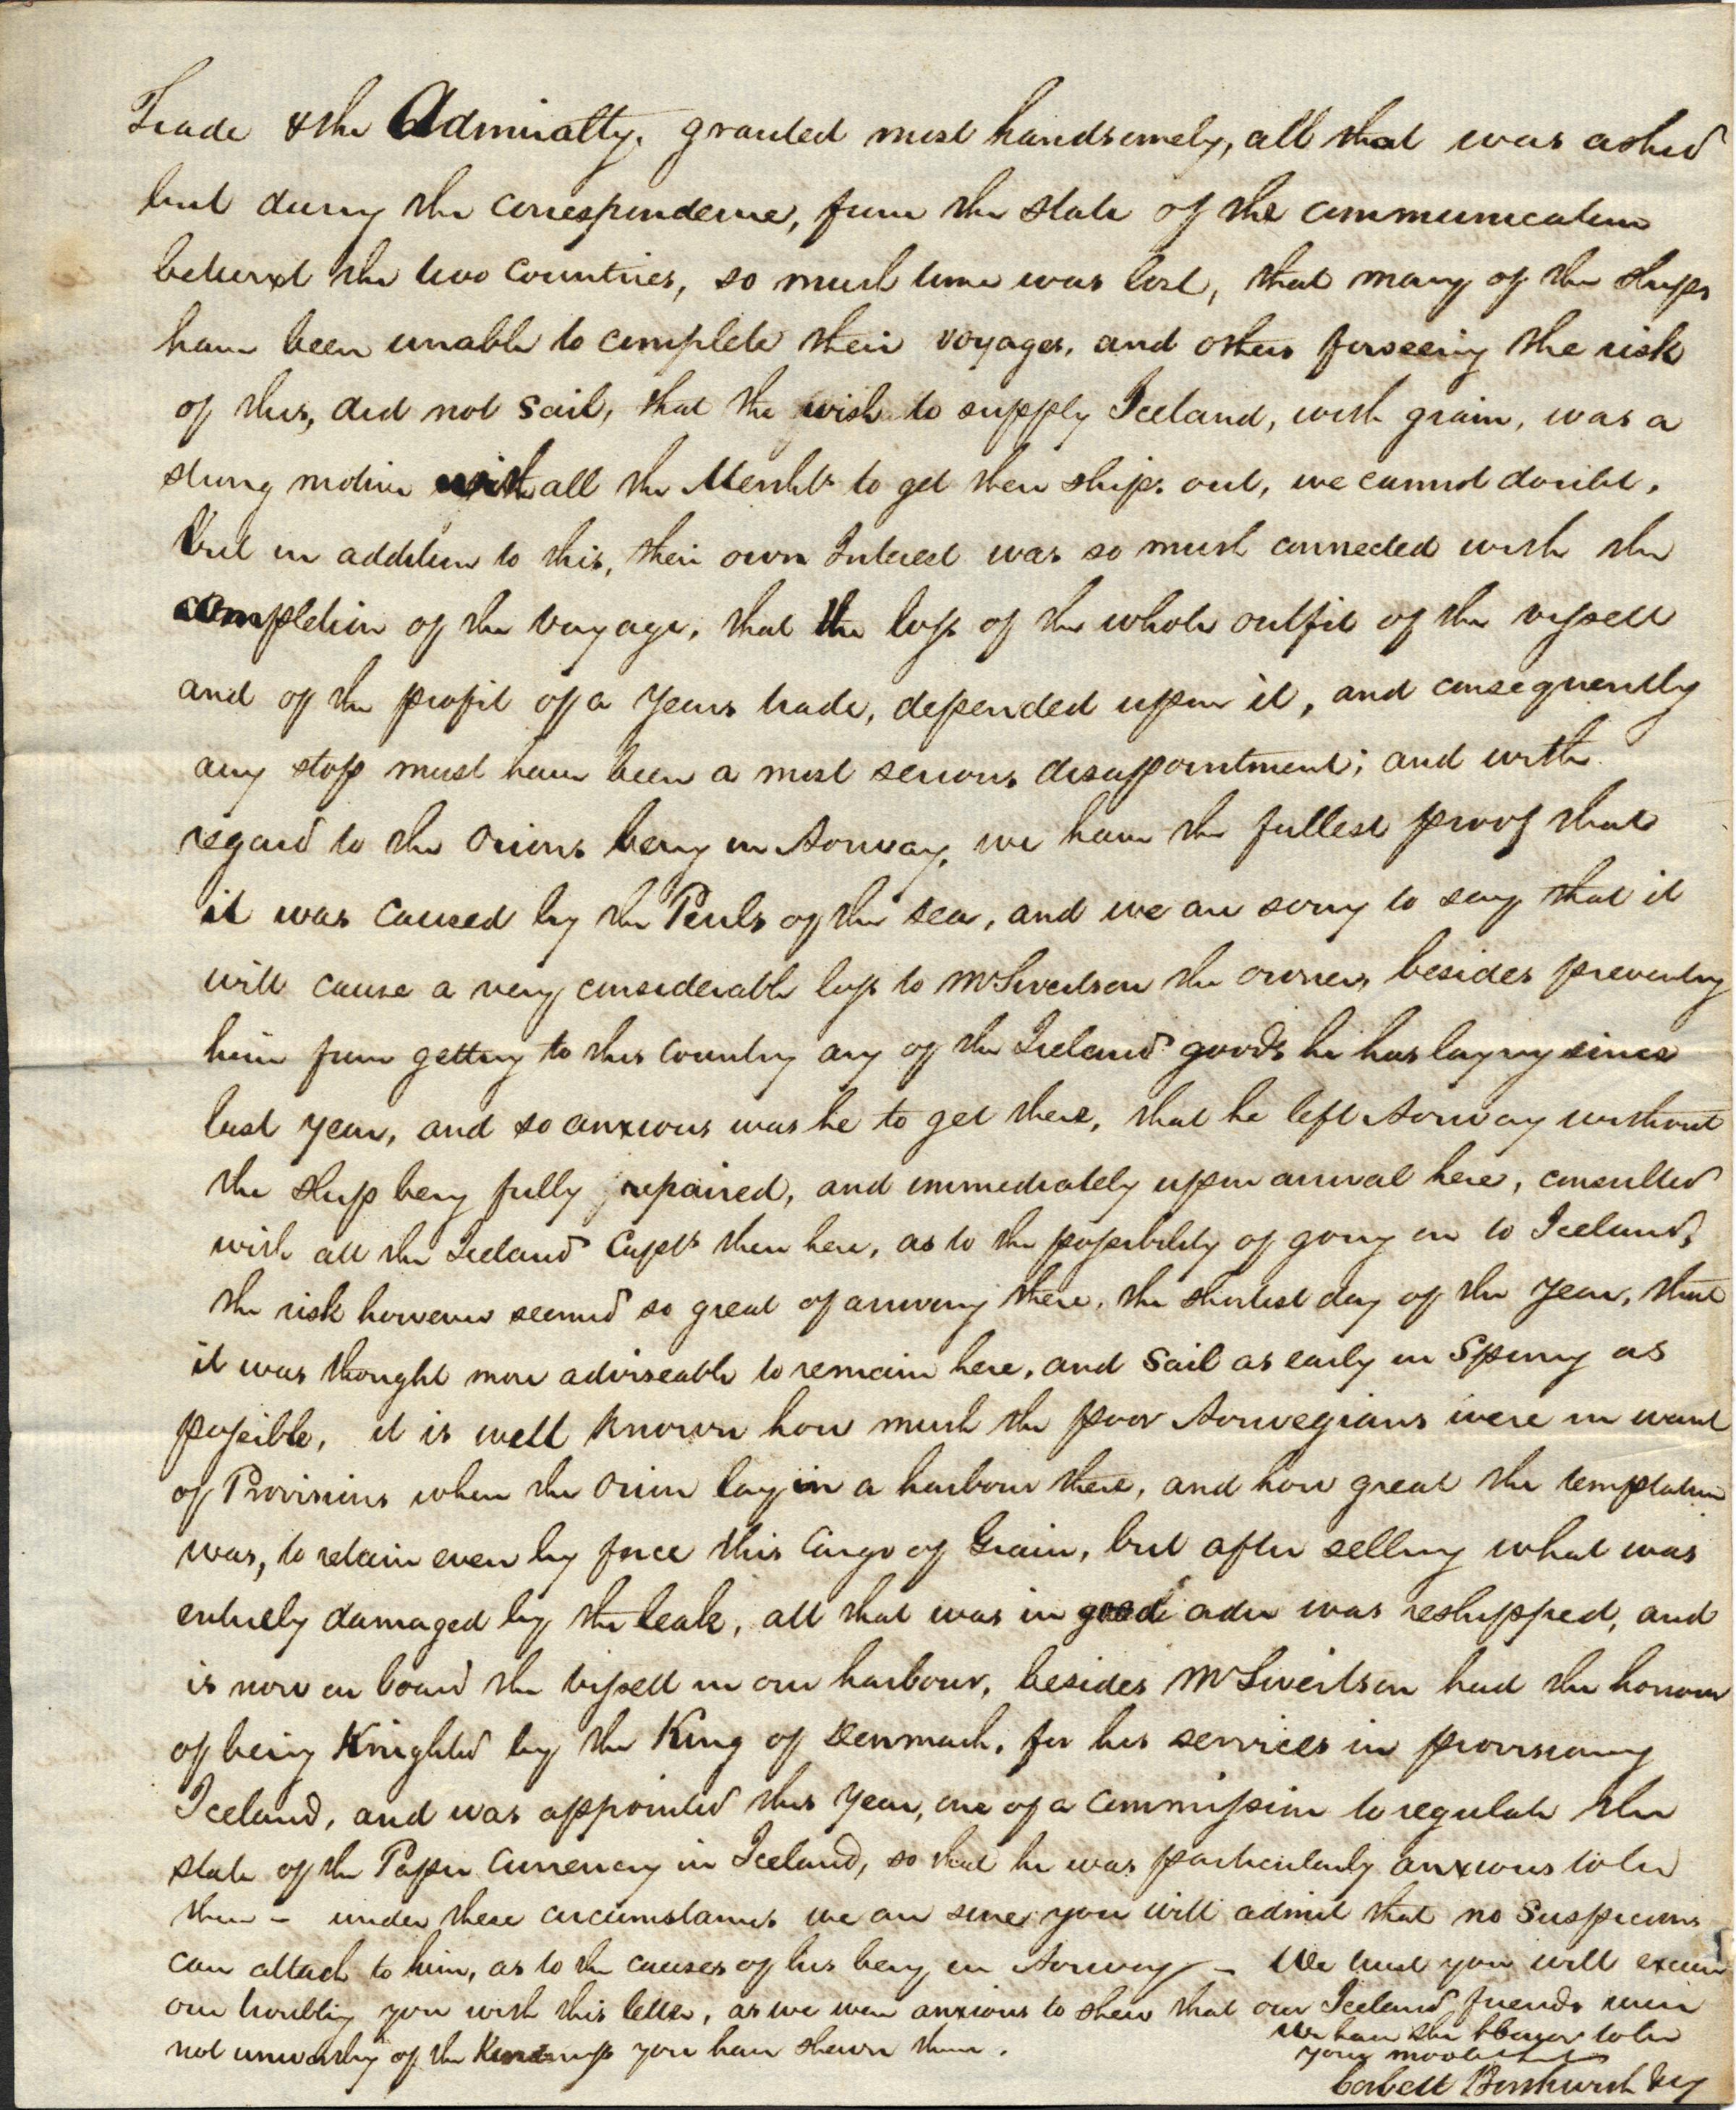 Trade & the Admiralty, granted most handsomely, all that was asked
but during the correspondence, from the state of the communication
betwixt the two Countries, so much time was lost, that many of the ships
have been unable to complete their voyages, and others forseeing the risk
of this, did not sail, that the wish to supply Iceland, with grain, was a
strong motive with all the Merchts to get their ships out, we cannot doubt,
but in addition to this, their own Interest was so much connected with the
completion of the voyage, that the loss of the whole outfit of the vessell
and of the profit of a Years trade, depended upon it, and consequently
any stop must have been a most serious disappointment; and with
regard to the Orions being in Norway, we have the fullest proof that
it was caused by the Perils of the sea, and we are sorry to say that it
will cause a very considerable loss to Mr Sivertson the owner, besides preventing
him from getting to this Country any of the Iceland goods he has laying since
last year, and so anxious was he to get there, that he left Norway without
the ship being fully repaired, and immediately upon arrival here, consulted
with all the Iceland Capts then here, as to the possibility of going on to Iceland,
the risk however seemed so great of arriving there, the shortest day of the Year, that
it was thought more adviseable to remain here, and Sail as early in Spring as
possible, it is well known how much the poor Norwegians were in want
of Provisions when the Orion lay in a harbour there, and how great the temptation
was, to retain even by force this Cargo of Grain, but after selling what was
entirely damaged by the leak, all that was in good order was reshipped, and
is now on board the vessell in our harbour, besides Mr Sivertson had the honour
of being Knighted by the King of Denmark, for his services in provisioning
Iceland, and was appointed this Year, one of a Commission to regulate the
state of the Paper Currency in Iceland, so that he was particularly anxious to be
there – under these circumstances we are sure you will admit that no Suspicions
can attach to him, as to the causes of his being in Norway – We trust you will excuse
our troubling you with this letter, as we were anxious to shew that our Iceland friends were
not unworthy of the Kindness you have shewn them.
We have the Honor to be
your
Corbett Borthwick & Cy